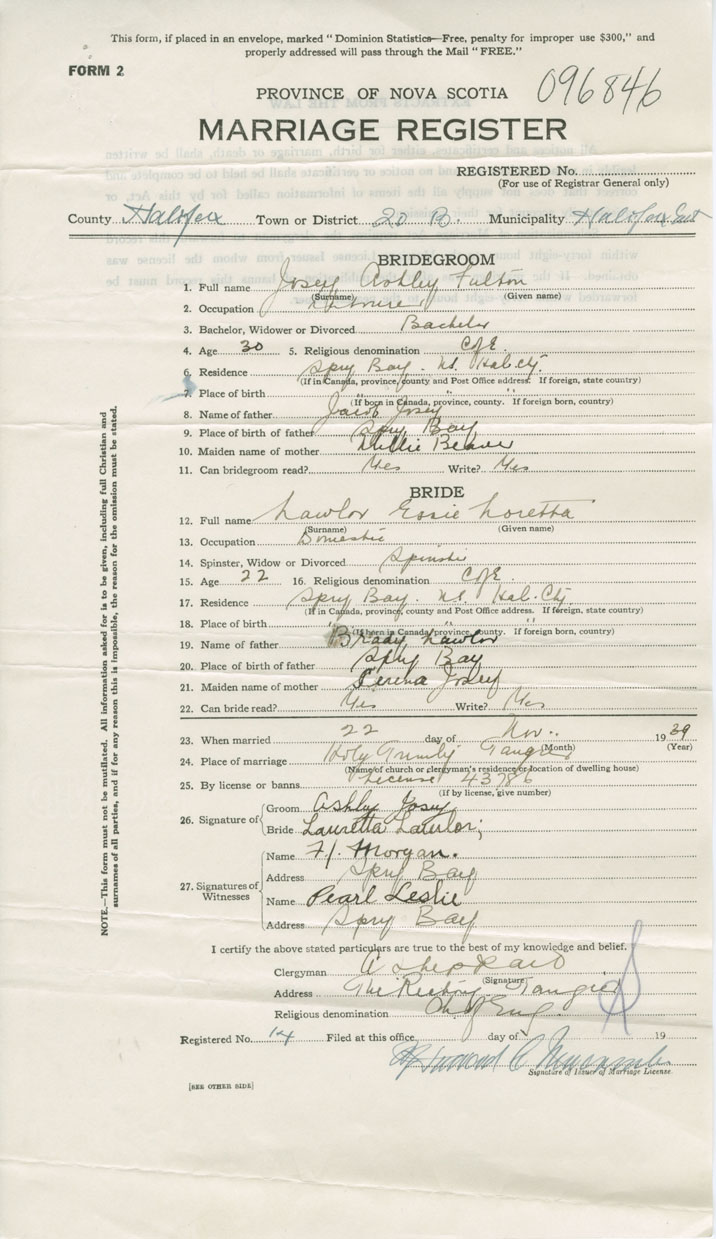 This form, if placed in an envelope, marked " Dominion Statistics—Free, penalty for improper use $300," and
properly addressed will pass through the Mail " FREE."
FORM 2
PROVINCE OF NOVA SCOTIA 096846
MARRIAGE REGISTER
REGISTERED No.
(For use of Registrar General only)
County Halifax Town or District 20 B. Municipality Halifax East
BRIDEGROOM
1. Full name Josey Ashley Fulton
(Surname) (Given name)
2. Occupation
3. Bachelor, Widower or Divorced Bachelor
4. Age 30 5. Religious denomination C of E.
6. Residence Spry Bay. N.S. Hal. Cty.
(If in Canada, province, county and Post Office address. If foreign, state country)
7. Place of birth " " "
(If born in Canada, province, county. If foreign born, country)
8. Name of father Jacob Josey
9. Place of birth of father Spry Bay
10. Maiden name of mother Millie Beaver
11. Can bridegroom read? Yes Write? Yes
BRIDE
12. Full name Lawlor Essie Loretta
(Surname) (Given name)
13. Occupation Domestic
14. Spinster, Widow or Divorced Spinster
15. Age 22 16. Religious denomination C of E.
17. Residence Spry Bay. N.S. Hal. Cty.
(If in Canada, province, county and Post Office address. If foreign, state country)
18. Place of birth " " "
(If born in Canada, province, county. If foreign born, country)
19. Name of father Brady Lawlor
20. Place of birth of father Spry Bay
21. Maiden name of mother Josey
22. Can bride read? Yes Write? Yes
23. When married 22 day of Nov. 1939
(Month) (Year)
24. Place of marriage Holy Trinity Tangier
(Name of church or clergyman's residence or location of dwelling house)
25. By license or banns License 43786
(If by license, give number)
26. Signature of
Groom Ashley Josey
Bride Lauretta Lawlor;
27. Signatures of Witnesses
Name F. J. Morgan.
Address Spry Bay
Name Pearl Leslie
Address Spry Bay
I certify the above stated particulars are true to the best of my knowledge and belief.
Clergyman A Sheppard
(Signature)
Address The Rectory Tangier
Religious denomination Ch of Eng.
Registered No. 14 Filed at this office day of 19
Signature of Issuer of Marriage License.
[SEE OTHER SIDE]
NOTE.—This form must not be mutilated. All information asked for is to be given, including full Christian and
surnames of all parties, and if for any reason this is impossible, the reason for the omission must be stated.